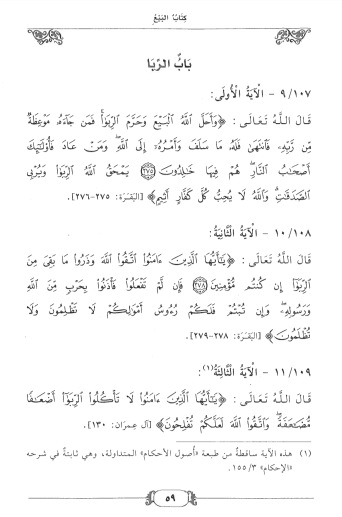 كِتَابُ البَيْعِ
بَابُ الرِّبَا
٩/١٠٧ - الْآيَةُ الْأُولَى:
قَالَ اللَّهُ تَعَالَى: ﴿وَأَحَلَّ اللَّهُ الْبَيْعَ وَحَرَّمَ الرِّبَوٰا۟ فَمَن جَآءَهُۥ مَوْعِظَةٌ
مِّن رَّبِّهِۦ فَٱنتَهَىٰ فَلَهُۥ مَا سَلَفَ وَأَمْرُهُۥٓ إِلَى ٱللَّهِ ۖ وَمَنْ عَادَ فَأُو۟لَٰٓئِكَ
أَصْحَٰبُ ٱلنَّارِ ۖ هُمْ فِيهَا خَٰلِدُونَ ﴿٢٧٥﴾ يَمْحَقُ ٱللَّهُ ٱلرِّبَوٰا۟ وَيُرْبِى
ٱلصَّدَقَٰتِ ۗ وَٱللَّهُ لَا يُحِبُّ كُلَّ كَفَّارٍ أَثِيمٍ﴾ [البَقَرَة: ٢٧٥-٢٧٦].
١٠/١٠٨ - الْآيَةُ الثَّانِيَةُ:
قَالَ اللَّهُ تَعَالَى: ﴿يَٰٓأَيُّهَا ٱلَّذِينَ ءَامَنُوا۟ ٱتَّقُوا۟ ٱللَّهَ وَذَرُوا۟ مَا بَقِىَ مِنَ
ٱلرِّبَوٰٓا۟ إِن كُنتُم مُّؤْمِنِينَ ﴿٢٧٨﴾ فَإِن لَّمْ تَفْعَلُوا۟ فَأْذَنُوا۟ بِحَرْبٍ مِّنَ ٱللَّهِ
وَرَسُولِهِۦ ۖ وَإِن تُبْتُمْ فَلَكُمْ رُءُوسُ أَمْوَٰلِكُمْ لَا تَظْلِمُونَ وَلَا
تُظْلَمُونَ﴾ [البَقَرَة: ٢٧٨-٢٧٩].
١١/١٠٩ - الْآيَةُ الثَّالِثَةُ(١):
قَالَ اللَّهُ تَعَالَى: ﴿يَٰٓأَيُّهَا ٱلَّذِينَ ءَامَنُوا۟ لَا تَأْكُلُوا۟ ٱلرِّبَوٰٓا۟ أَضْعَٰفًا
مُّضَٰعَفَةً ۖ وَٱتَّقُوا۟ ٱللَّهَ لَعَلَّكُمْ تُفْلِحُونَ﴾ [آل عِمرَان: ١٣٠].
(١) هذه الآية ساقطةٌ من طبعة «أصول الأحكام» المتداولة، وهي ثابتةٌ في شرحه
«الإحكام» ٣/١٥٥.
٥٩